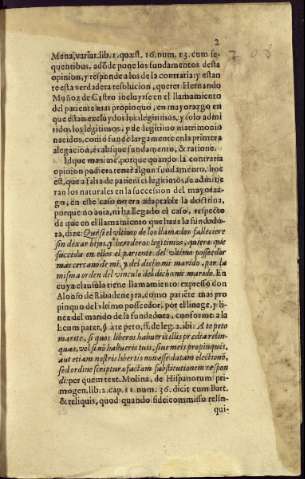 2
Mena, variar. lib. 1. quæst. 16. num. 23. cum se-
quentibus, adōde pone los fundamentos desta
opinion, y responde a los de la contraria: y estan
te esta verdadera resolucion, querer Hernando
Muñoz de Castro incluyrse en el llamamiento
del pariente mas propinquo, en mayorazgo en
que estan excluydos los ilegitimos, y solo admi
tidos los legitimos, y de legitimo matrimonio
nacidos, como funde largamente en la primera
alegacion, es absque fundamento, & ratione.
Idque maximè, porque quando la contraria
opinion pudiera tener algun fundamento, hoc
est, que a falta de parientes legitimos, se admitie
ran los naturales en la succession del mayoraz-
go, en este caso no era adaptable la doctrina,
porque no auia, ni ha llegado el caso, respeto
de que en el llamamiento que haze la fundado-
ra, dize: Que si el vltimo de los llamados falleciere
sin dexar hijos, y herederos legitimos, quiero que
suceda en ellos el pariente del vltimo posseedor
mas cercano de mi, y del dicho mi marido, por la
misma orden del vinculo del dicho mi marido. En
cuya clausula tiene llamamiento expresso don
Alonso de Ribadeneira, como pariente mas pro
pinquo del vltimo posseedor, por el linage, y li-
nea del marido de la fundadora, conforme a la
l. cum pater, §. à te peto, ff. de leg. 2. ibi: A te peto
marite, si quos liberos habueris illis prædia relin-
quas, vel si nō habueris tuis, siue meis propinquis,
aut etiam nostris libertis non esse datam electionē,
sed ordine scripturæ factam substitutionem respon
di: per quem text. Molina, de Hispanorum pri-
mogen. lib. 1. cap. num. 36. dicit cum Bart.
& reliquis, quod quando fideicommisso relin-
qui-